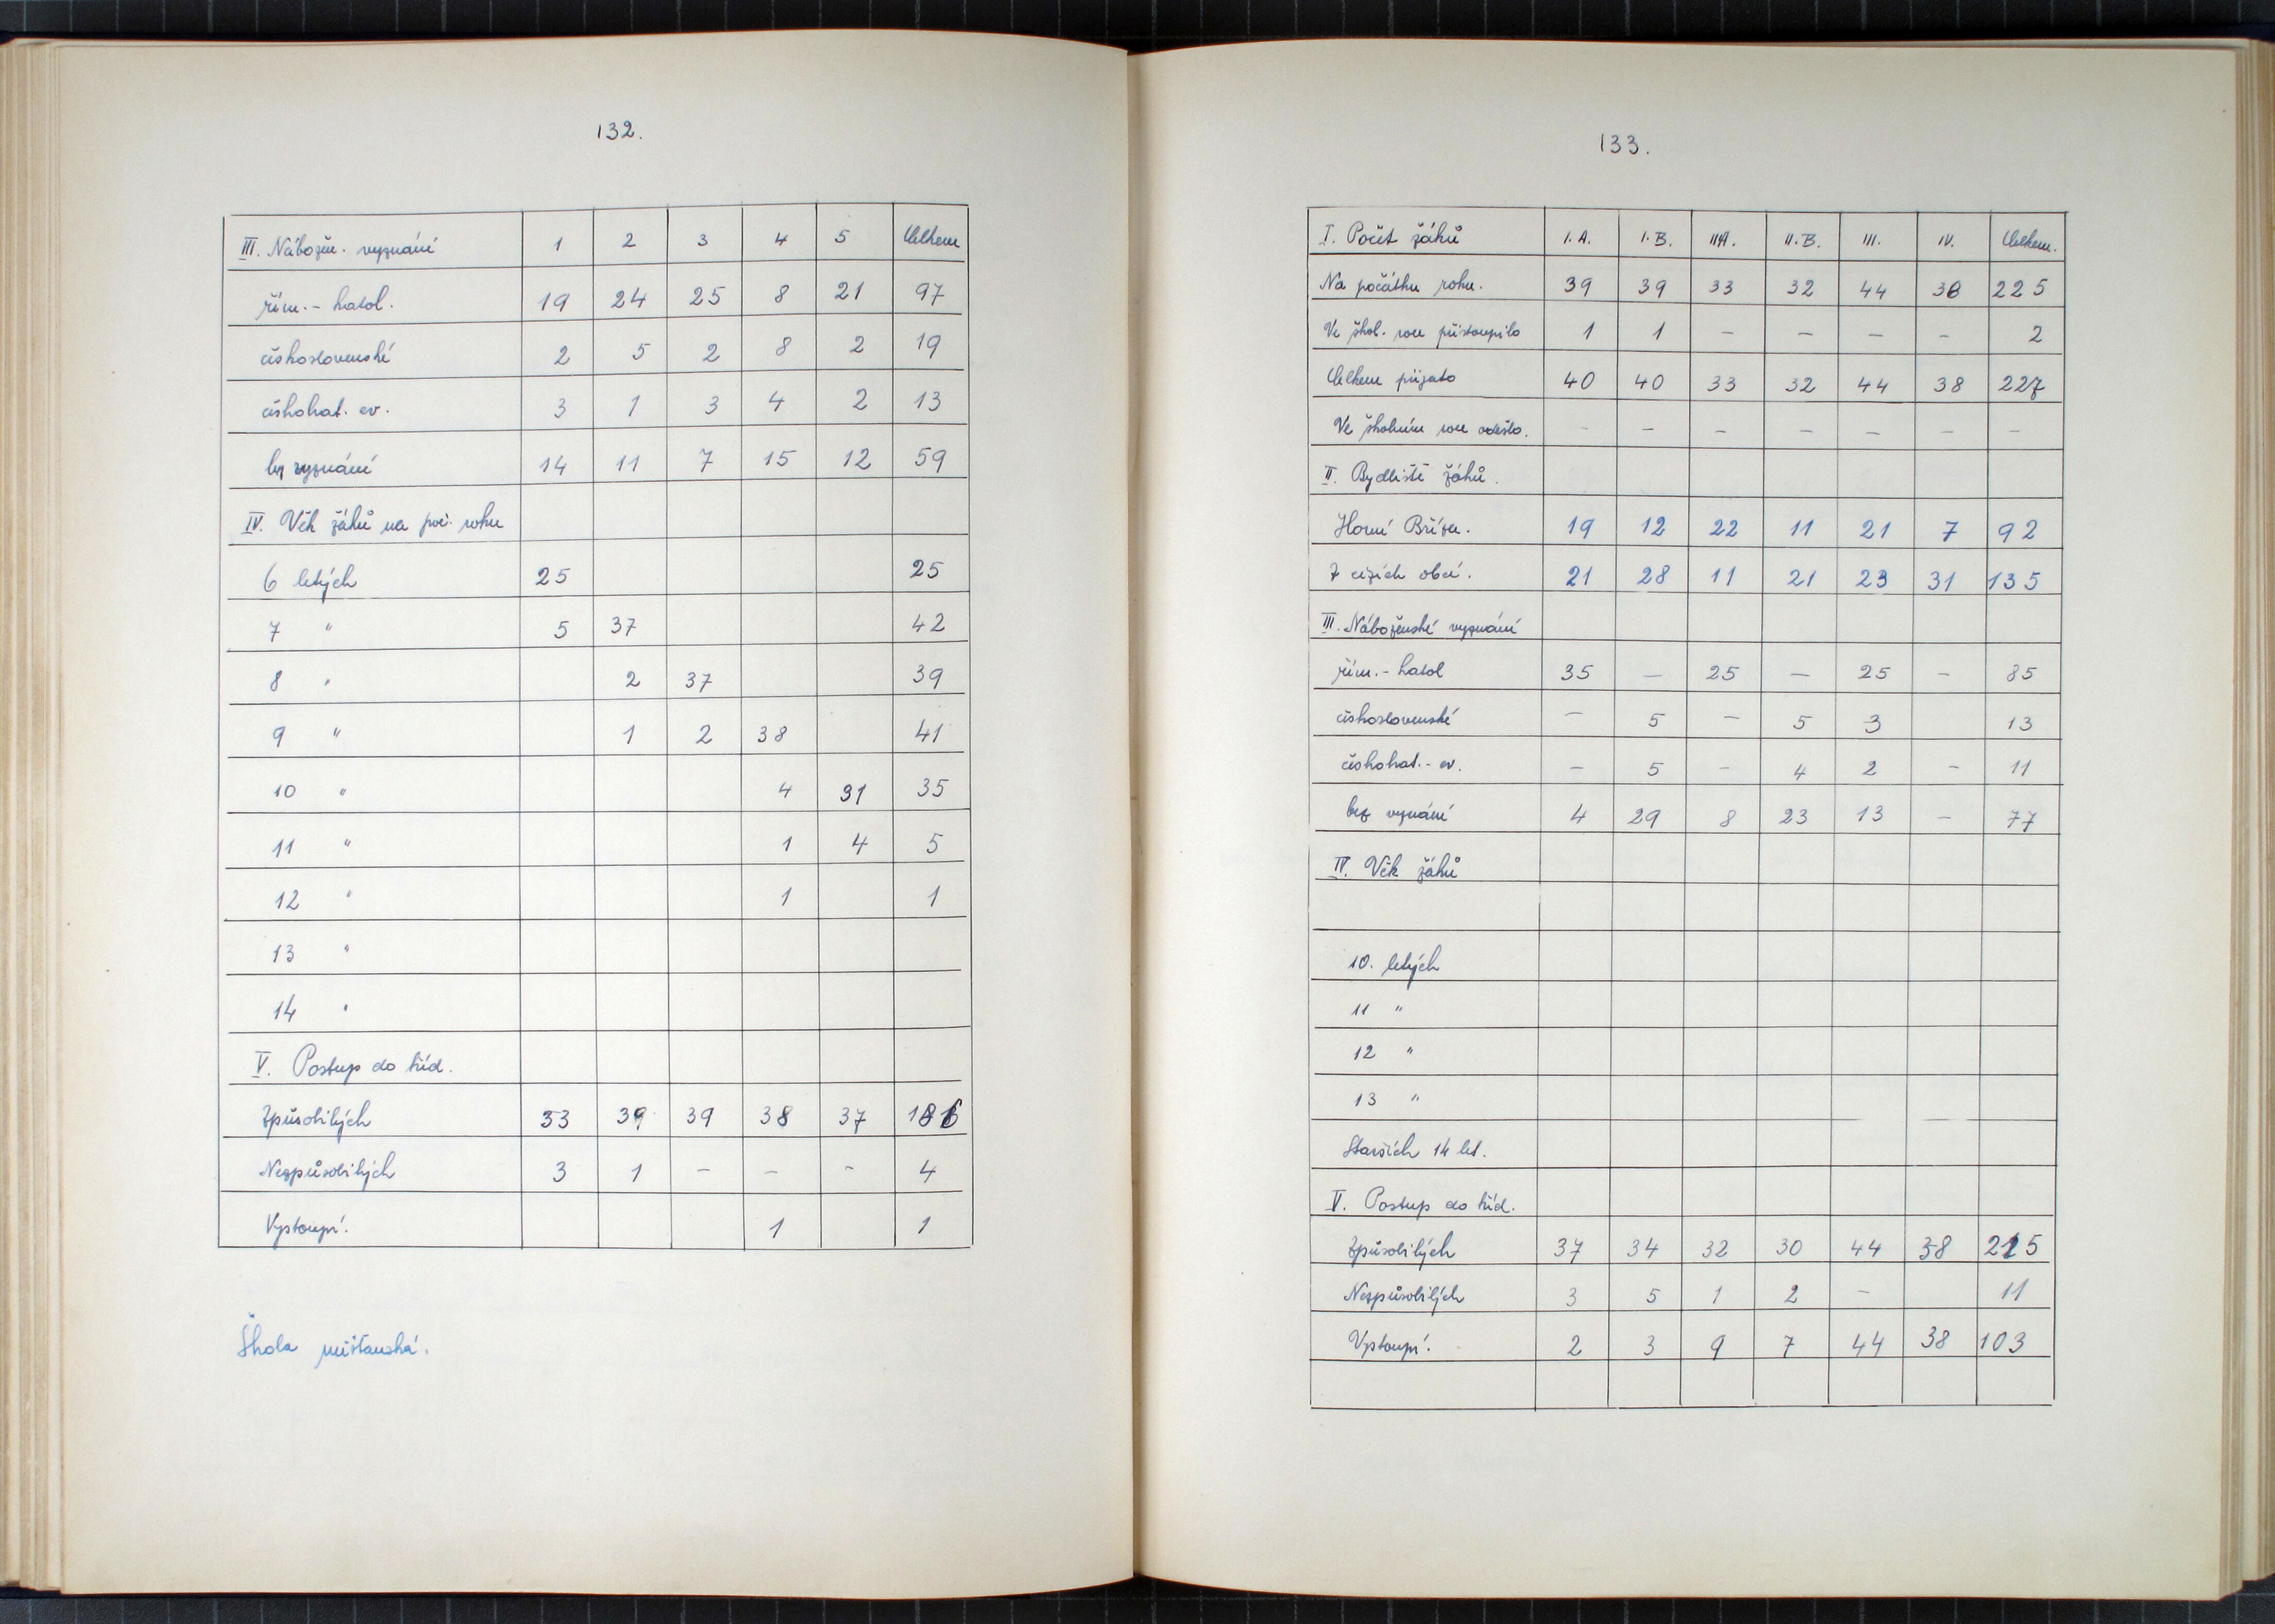 132.
III. Nábožen. vyznání 1 2 3 4 5 Celkem
řím. - katol. 19 24 25 8 21 97
československé 2 5 2 8 2 19
českobrat. ev. 3 1 3 4 2 13
bez vyznání 14 11 7 15 12 59
IV. Věk žáků na poč. roku
6 letých 25 25
7 " 5 37 42
8 " 2 37 39
9 " 1 2 38 41
10 " 4 31 35
11 " 1 4 5
12 " 1 1
13 "
14 "
V. Postup do tříd.
Způsobilých 33 39 39 38 37 186
Nezpůsobilých 3 1 - - - 4
Vystoupí. 1 1
Škola měšťanská.
133.
I. Počet žáků I. A. I. B. II A. II. B. III. IV. Celkem.
Na počátku roku. 39 39 33 32 44 38 225
Ve škol. roce přistoupilo 1 1 - - - - 2
Celkem přijato 40 40 33 32 44 38 227
Ve školním roce odešlo. - - - - - - -
II. Bydliště žáků.
Horní Bříza. 19 12 22 11 21 7 92
Z cizích obcí. 21 28 11 21 23 31 135
III. Náboženské vyznání
řím. - katol 35 - 25 - 25 - 85
československé - 5 - 5 3 13
českobrat. - ev. - 5 - 4 2 - 11
bez vyznání 4 29 8 23 13 - 77
IV. Věk žáků
10. letých
11 "
12 "
13 "
Starších 14 let.
V. Postup do tříd.
Způsobilých 37 34 32 30 44 38 215
Nezpůsobilých 3 5 1 2 - 11
Vystoupí. 2 3 9 7 44 38 103